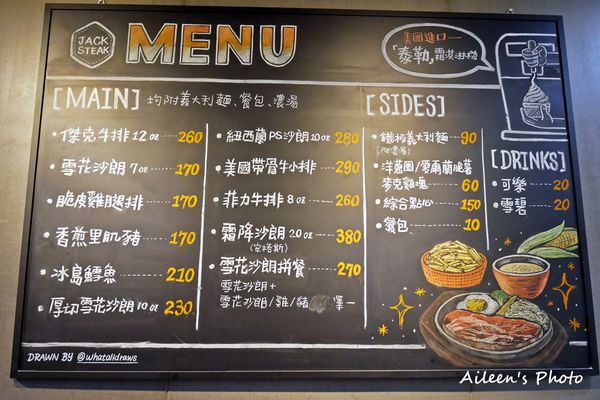 JACK
STEAK
MENU
美國進口一
「泰勒」霜淇淋機
[MAIN] 均附義大利麵、餐包、濃湯
傑克牛排 12oz 260
雪花沙朗 7oz 170
脆皮雞腿排 170
香煎里肌豬 170
冰島鱈魚 210
厚切雪花沙朗 10oz 230
紐西蘭PS沙朗 10oz 280
美國帶骨牛小排 290
菲力牛排 8oz 260
霜降沙朗 20oz 380
(安格斯)
雪花沙朗拼餐 270
雪花沙朗+
雪花沙朗/雞/豬 擇一
[SIDES]
鐵板義大利麵 90
(附濃湯)
洋蔥圈/愛爾蘭脆薯
麥克雞塊 60
綜合點心 150
餐包 10
[DRINKS]
可樂 20
雪碧 20
DRAWN BY @whatalldraws
Aileen's Photo